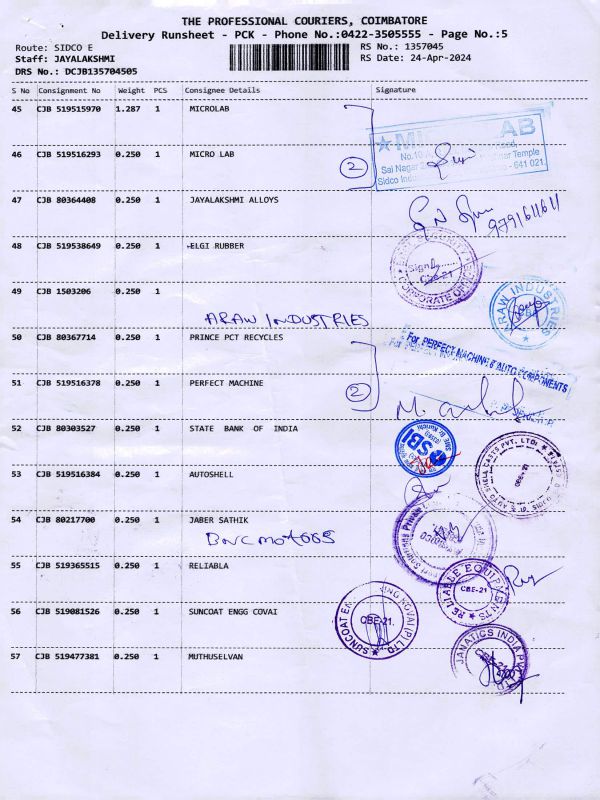 THE PROFESSIONAL COURIERS, COIMBATORE
Delivery Runsheet - PCK - Phone No.:0422-3505555 - Page No.:5
Route: SIDCO E
RS No.: 1357045
Staff: JAYALAKSHMI
RS Date: 24-Apr-2024
DRS No.: DCJB135704505
S No Consignment No Weight PCS Consignee Details Signature
45 CJB 519515970 1.287 1 MICROLAB
AB
46 CJB 519516293 0.250 1 MICRO LAB
2
No.10
Temple
Sai Nagar
641 021
Sidco Indu
47 CJB 80364408 0.250 1 JAYALAKSHMI ALLOYS
9791611611
48 CJB 519538649 0.250 1 ELGI RUBBER
CBE-21
CORPORATE OFFICE
49 CJB 1503206 0.250 1
ARAW INDUSTRIES
ARAW INDUSTRIES
50 CJB 80367714 0.250 1 PRINCE PCT RECYCLES
For PERFECT MACHINE & AUTO COMPONENTS
51 CJB 519516378 0.250 1 PERFECT MACHINE
2
52 CJB 80303527 0.250 1 STATE BANK OF INDIA
SBI
53 CJB 519516384 0.250 1 AUTOSHELL
AUTO SHELL CASTS PVT. LTD.
CBE-21
54 CJB 80217700 0.250 1 JABER SATHIK
BNC motors
55 CJB 519365515 0.250 1 RELIABLA
RELIABLE EQUIPMENTS
CBE-21
56 CJB 519081526 0.250 1 SUNCOAT ENGG COVAI
SUNCOAT ENGG KOVAI (P) LTD.
CBE-21.
57 CJB 519477381 0.250 1 MUTHUSELVAN
JANATICS INDIA
CBE-21